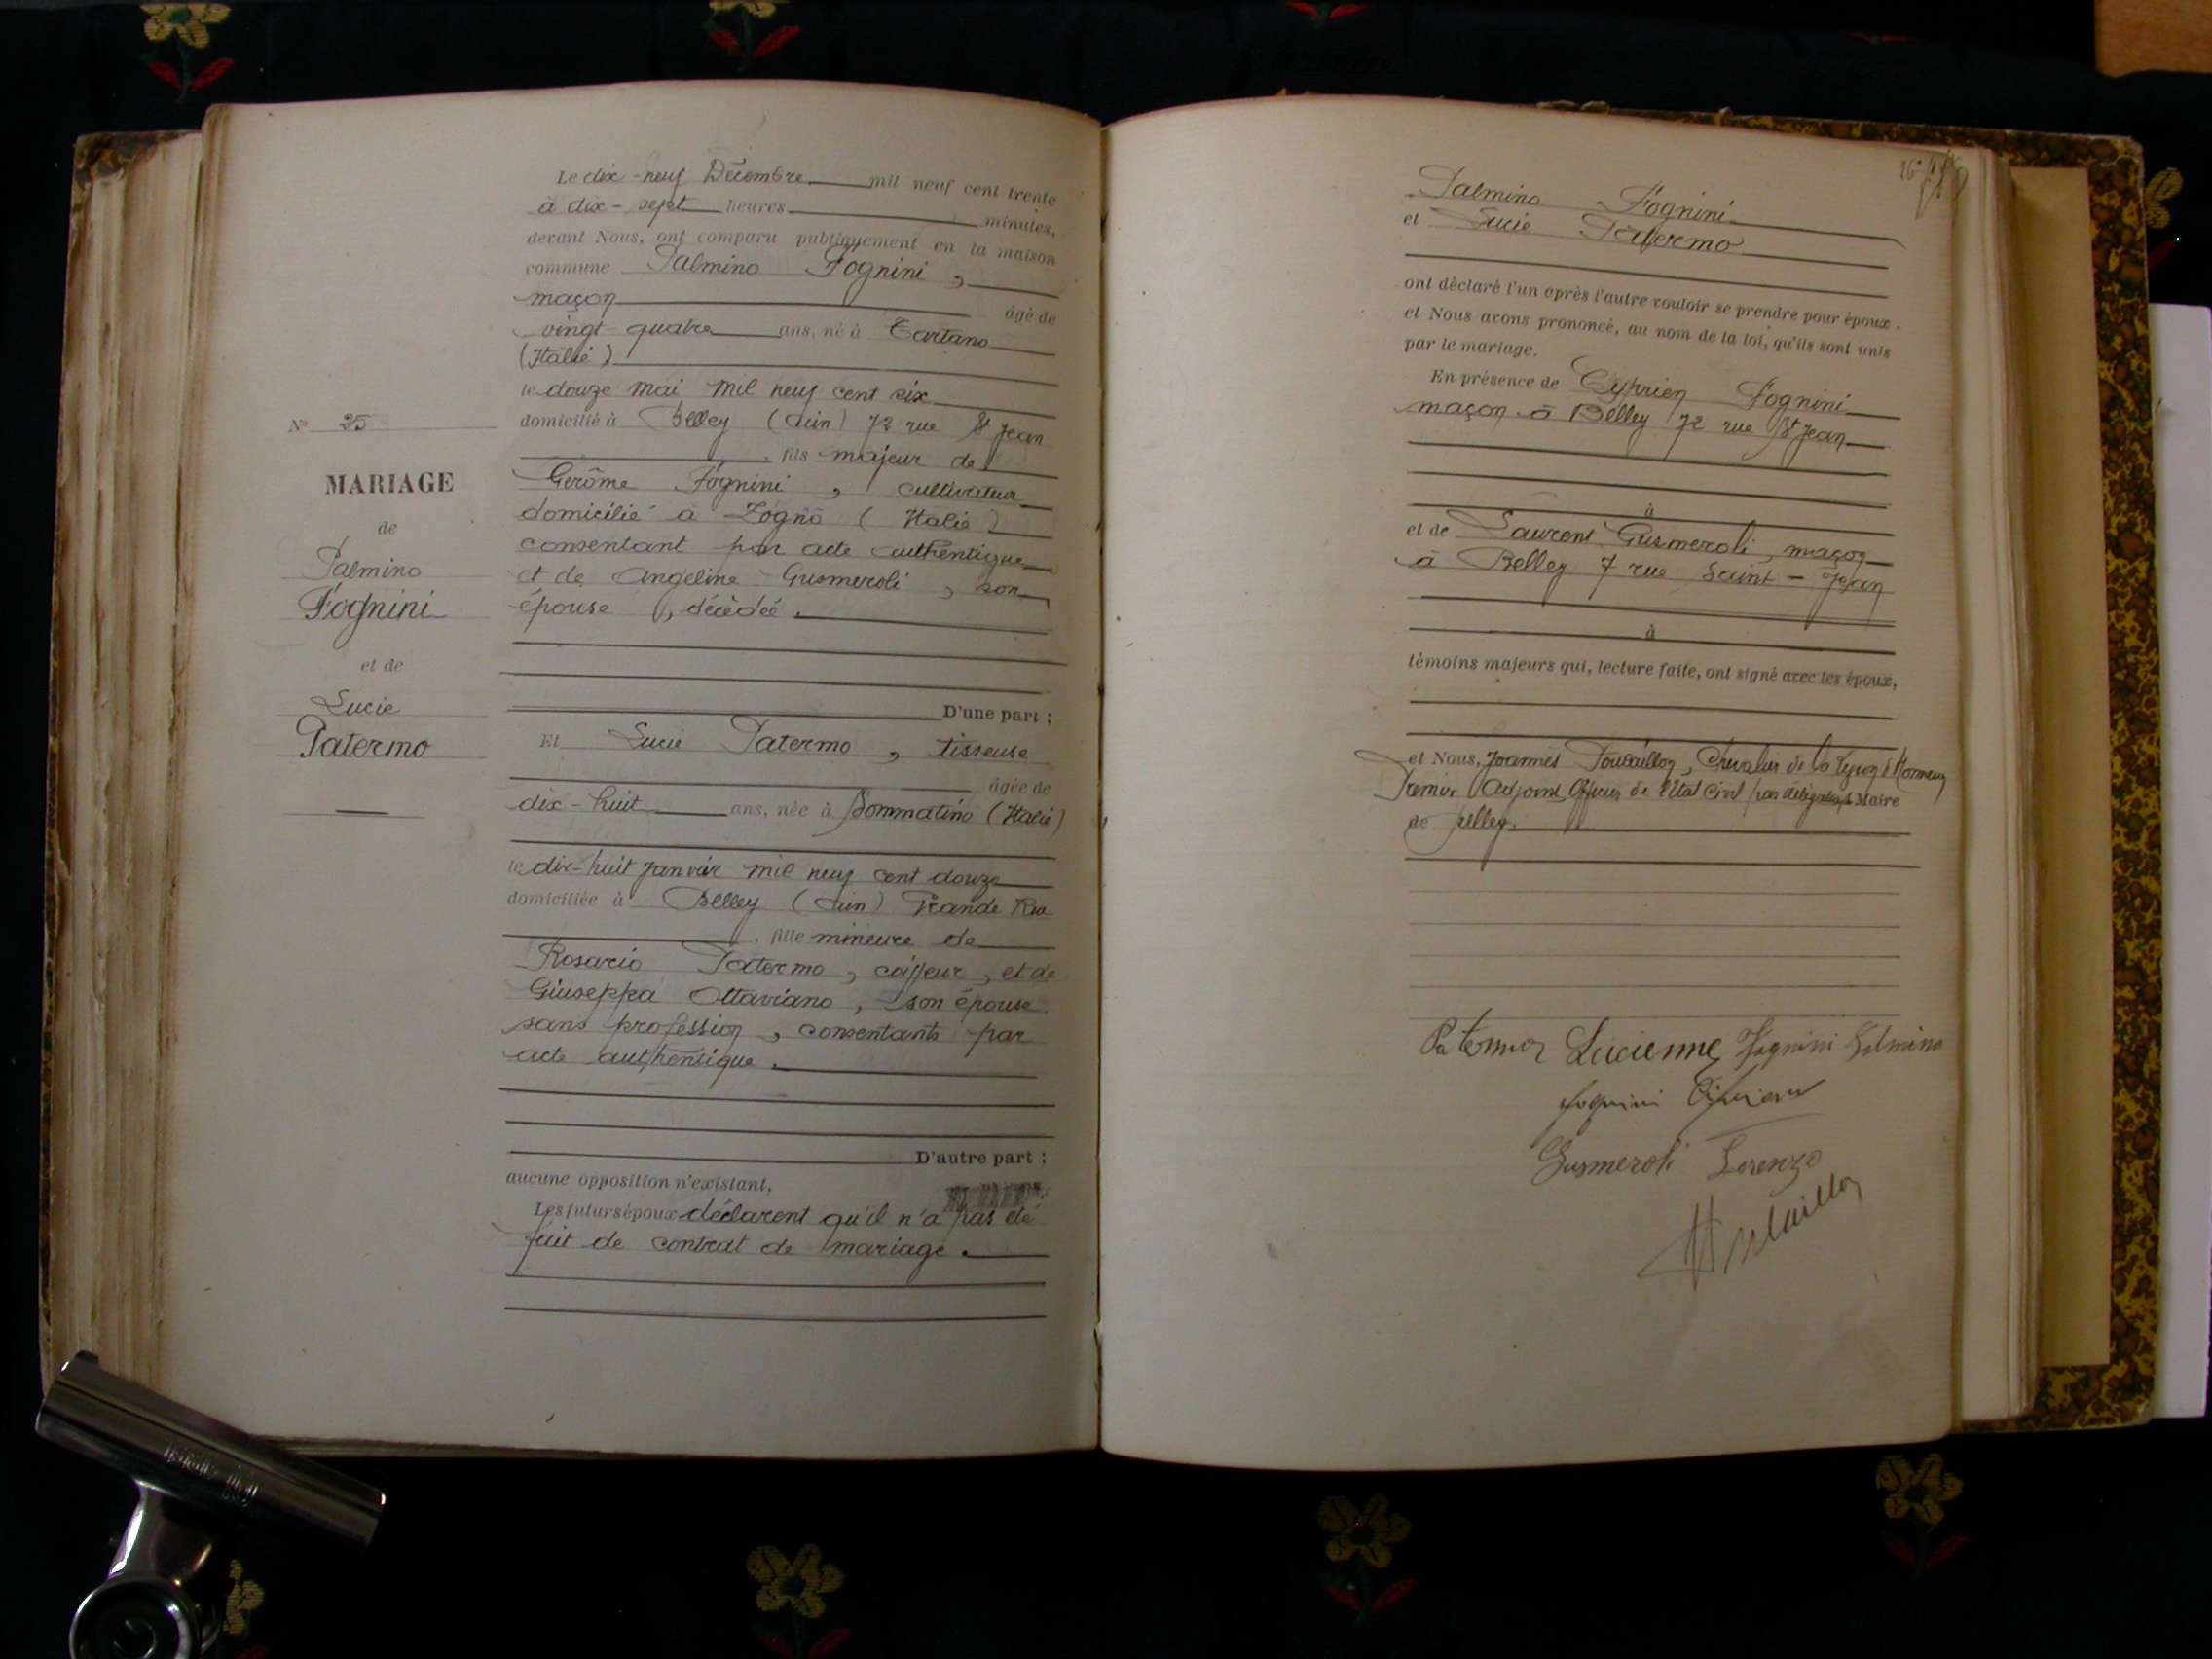 Le dix-neuf Décembre mil neuf cent trente
à dix-sept heures minutes,
devant Nous, ont comparu publiquement en la maison
commune Palmino Fognini,
maçon âgé de
vingt quatre ans, né à Tartano
(Italie)
le douze mai mil neuf cent six
domicilié à Belley (Ain) 72 rue St Jean
, fils majeur de
Gerôme Fognini, cultivateur
domicilié à Zogno (Italie)
consentant par acte authentique
et de Angeline Gusmeroli, son
épouse, décédée.
D'une part ;
Et Lucie Patermo, tisseuse
âgée de
dix-huit ans, née à Sommatino (Italie)
le dix-huit janvier mil neuf cent douze
domiciliée à Belley (Ain) Grande Rue
, fille mineure de
Rosario Patermo, coiffeur, et de
Giuseppa Ottaviano, son épouse
sans profession, consentants par
acte authentique.
D'autre part ;
aucune opposition n'existant,
Les futurs époux déclarent qu'il n'a pas été
fait de contrat de mariage.
N° 25
MARIAGE
de
Palmino
Fognini
et de
Lucie
Patermo
Palmino Fognini
et Lucie Patermo
ont déclaré l'un après l'autre vouloir se prendre pour époux.
et Nous avons prononcé, au nom de la loi, qu'ils sont unis
par le mariage.
En présence de Cyprien Fognini
maçon à Belley 72 rue St Jean
à
et de Laurent Gusmeroli, maçon
à Belley 7 rue Saint-Jean
à
témoins majeurs qui, lecture faite, ont signé avec les époux,
et Nous, Joannès, Chevalier de la Légion d'Honneur
Premier Adjoint, Officier de l'Etat Civil par délégation Maire
de Belley.
Lucienne Fognini Palmino
Fognini
Gusmeroli Lorenzo